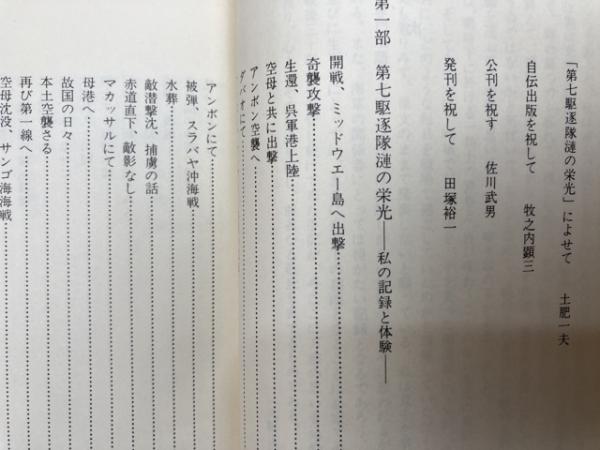 「第七駆逐隊漣の栄光」によせて 土肥一夫
自伝出版を祝して 牧之内顕三
公刊を祝す 佐川武男
発刊を祝して 田塚裕一
第一部 第七駆逐隊漣の栄光――私の記録と体験――
開戦、ミッドウエー島へ出撃
奇襲攻撃
生還、呉軍港上陸
空母と共に出撃
アンボン空襲へ
ダバオにて
アンボンにて
被弾、スラバヤ沖海戦
水葬
敵潜撃沈、捕虜の話
赤道直下、敵影なし
マカッサルにて
母港へ
故国の日々
本土空襲さる
再び第一線へ
空母沈没、サンゴ海海戦